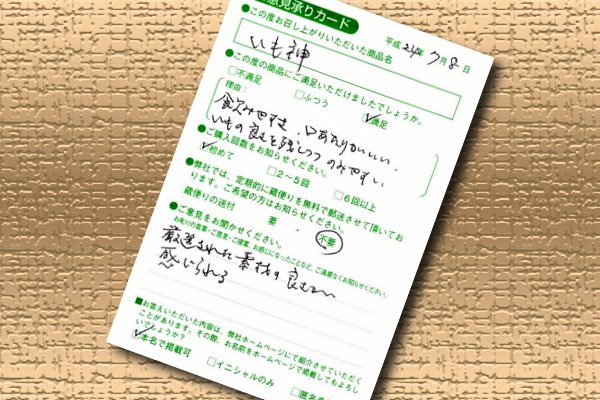 意見承りカード
●この度お召し上がりいただいた商品名
平成24年7月8日
いも神
●この度の商品にご満足いただけましたでしょうか。
□不満足 □ふつう ☑満足
理由：
飲みやすき、口あたりがいい、
いもの良さを残しつつのみやすい
●ご購入回数をお知らせください。
☑初めて □2～5回 □6回以上
●弊社では、定期的に蔵便りを無料で郵送させて頂いてお
ります。ご希望の方はお知らせください。
蔵便りの送付 要 ・ 不要
●ご意見をお聞かせください。
厳選された素材の良さが
感じられる
■お答えいただいた内容は、弊社ホームページにて紹介させていただく
ことがあります。その際、お名前をホームページで掲載してもよろし
いでしょうか？
☑本名で掲載可 □イニシャルのみ □匿名